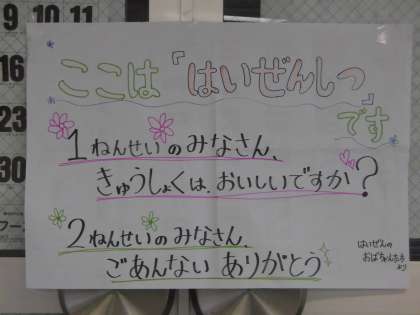 9 10 11
16
23
30
ここは「はいぜんしつ」
です
1ねんせいのみなさん、
きゅうしょくは、おいしいですか?
2ねんせいのみなさん、
ごあんないありがとう
はいぜんの
おばちゃんたち
より